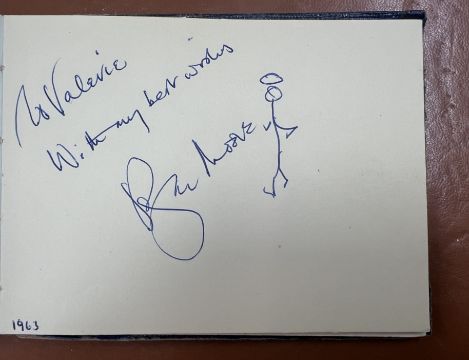 To Valerie
With my best wishes
Roger Moore
1963